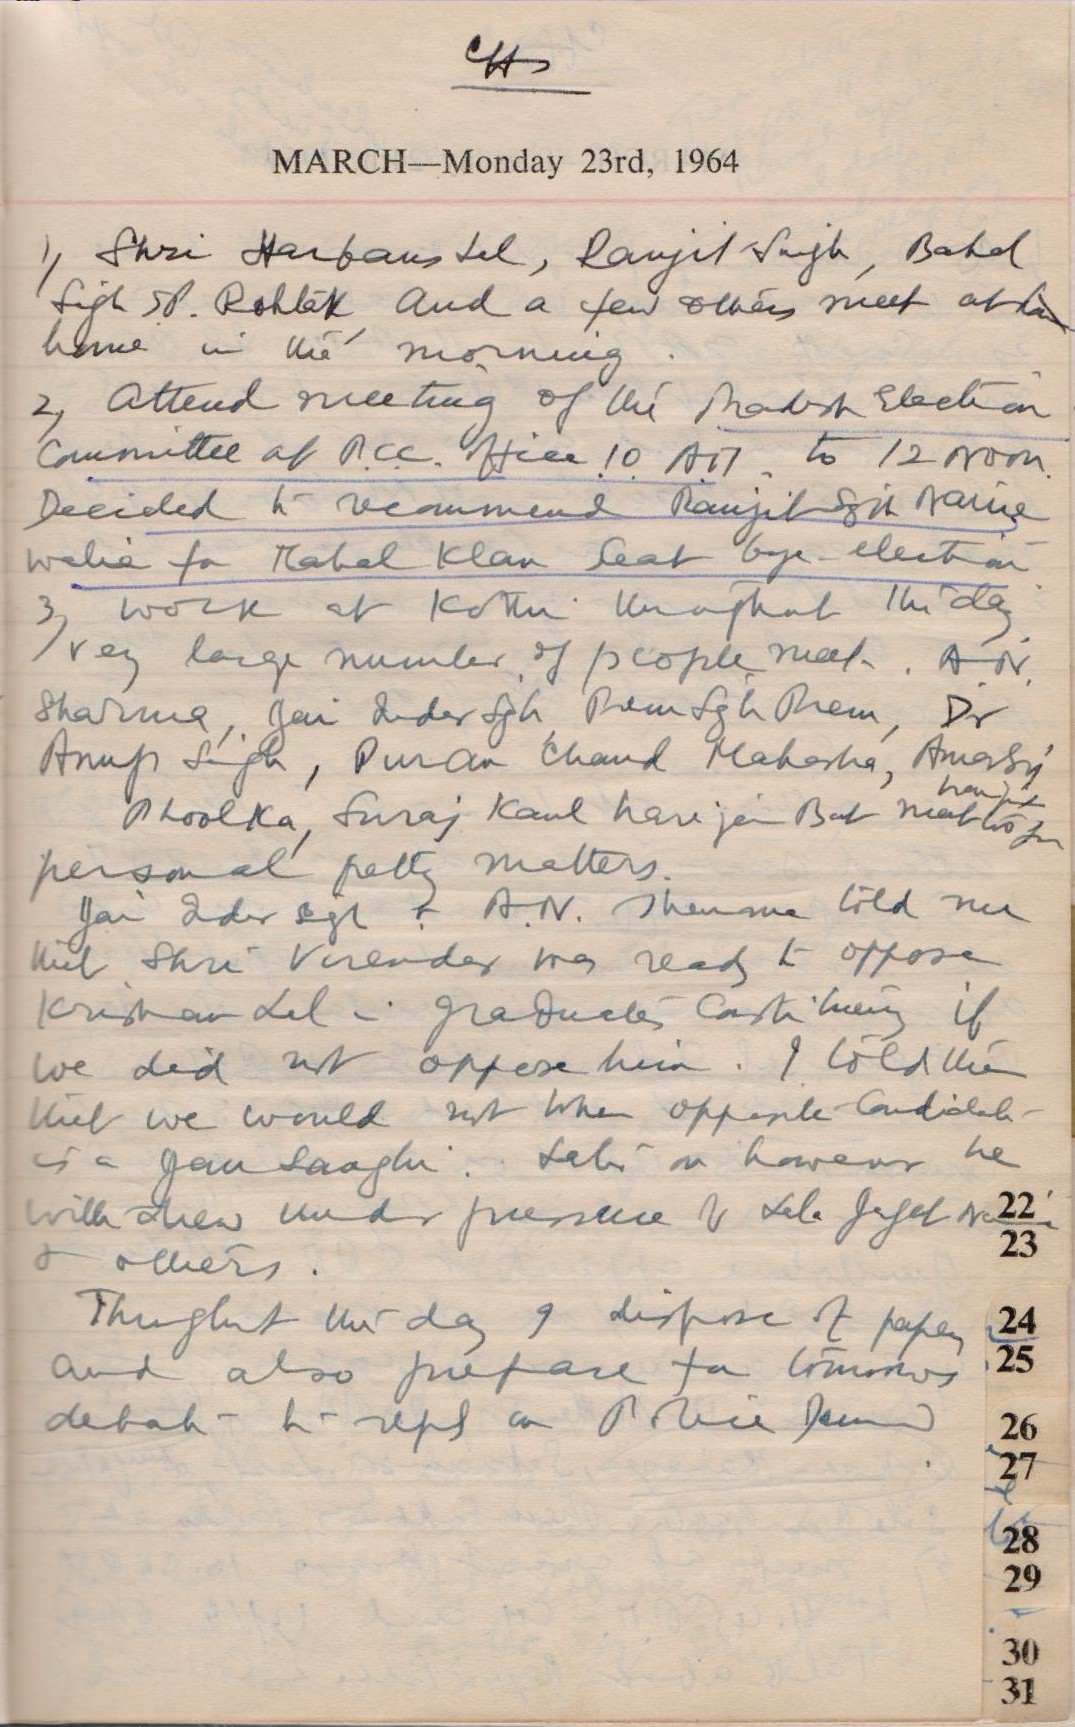 CHD
MARCH—Monday 23rd, 1964
1, Shri Harbans Lal, Ranjit Singh,
Sigh SP. Rohtak and a few others meet at
home in the morning.
2, Attend meeting of the Pradesh Election
Committee at P.C.C. office 10 AM. to 12 noon.
Decided to recommend Ranjit Sgh Naine
walia for Mahal Klan Seat bye-election
3, work at Kothi throughout the day
Very large number of people meet. A.N.
Sharma, Jai Inder Sgh, Prem Sgh Prem, Dr
Anup Singh, Puran Chand Mahasha,
Phoolka, Suraj Kaul harijan But meet
personal petty matters.
Jai Inder Sgh & A.N. Sharma told me
that Shri Virender was ready to oppose
Krishan Lal in graduates Constituency if
we did not oppose him. I told them
that we would not when opposite Candidate
is a Jan Sanghi. Later on however he
withdrew under pressure of Lala Jagat
& others.
Throughout the day I dispose of papers
and also prepare for tomorrows
debate to reply on Police Demand
22
23
24
25
26
27
28
29
30
31